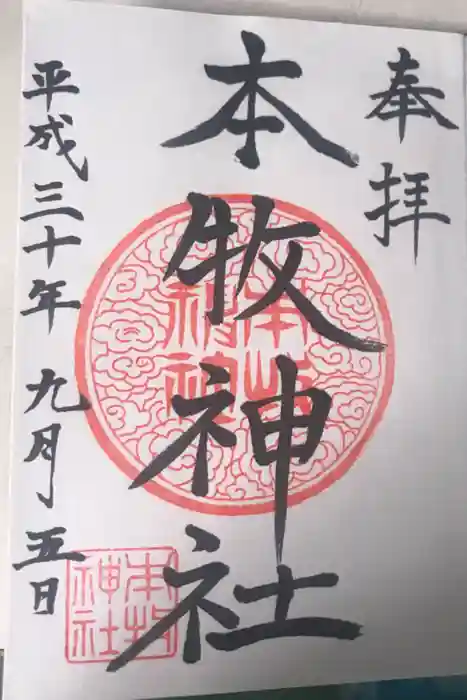 奉拝
本牧神社
平成三十年九月五日
本牧
神社